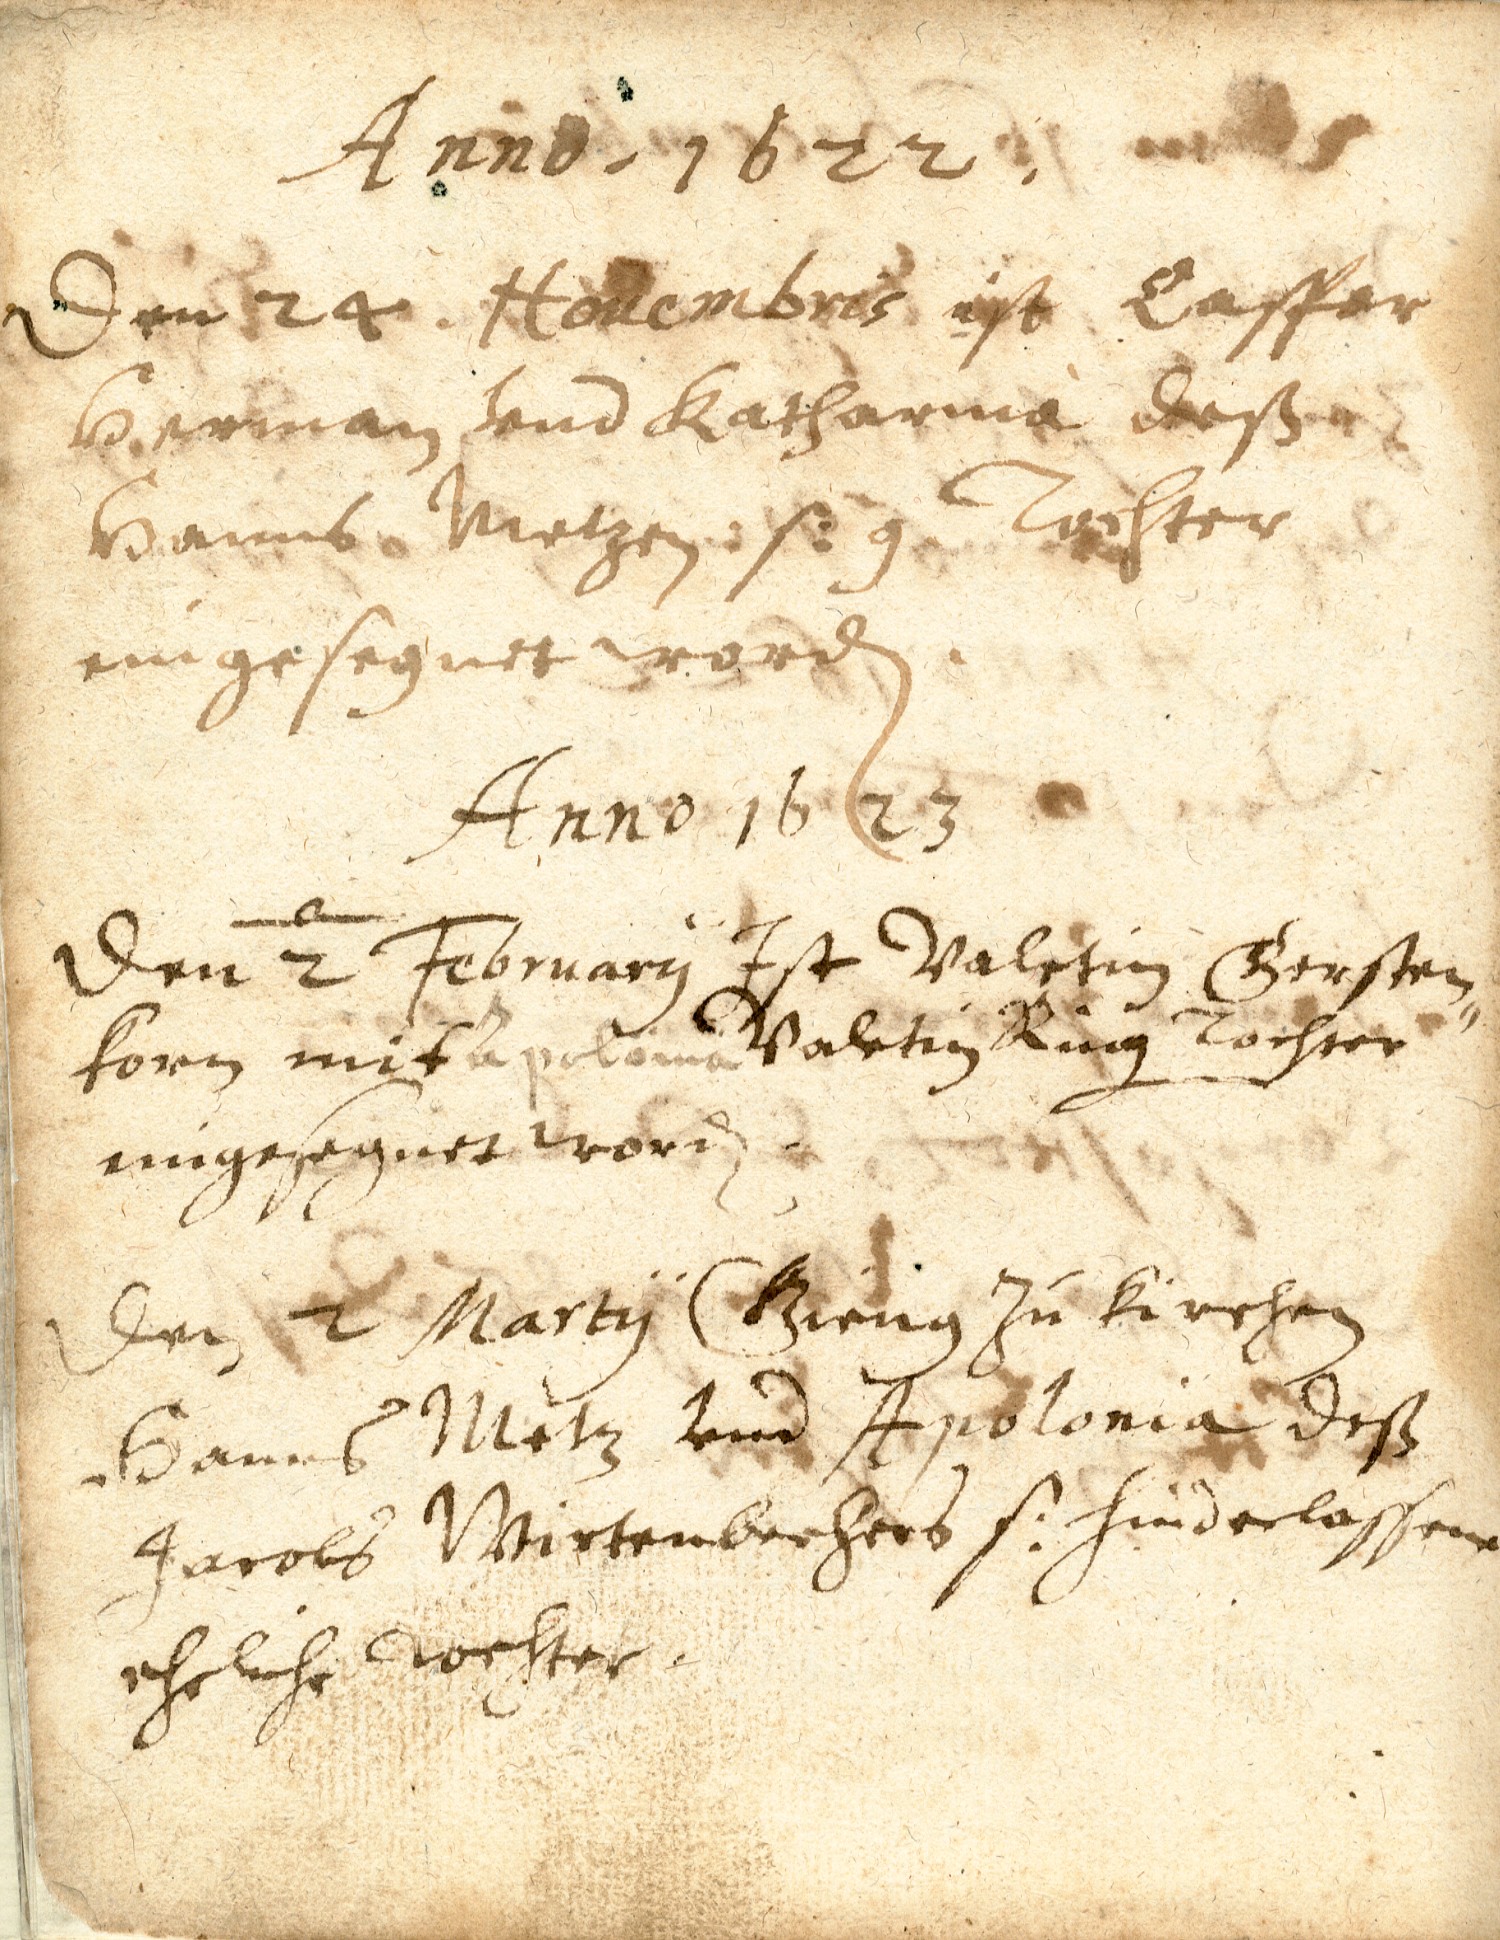 Anno . 1622 .
Den 24 . Nouembris ist Casspar
Herman vnd Katharina deß
Hanns Metzen : s: g Tochter
eingesegnet word
Anno 1623
Den 2 February Ist Valetin Gersten
korn mit Apolonia Valetin Ruig Tochter
eingesegnet word .
Den 2 Martij Gieng zu kirchen
Hanns Metz vnd Apolonia deß
Jacobs Wirtenbechers s: hinderlassene
eheliche Tochter .